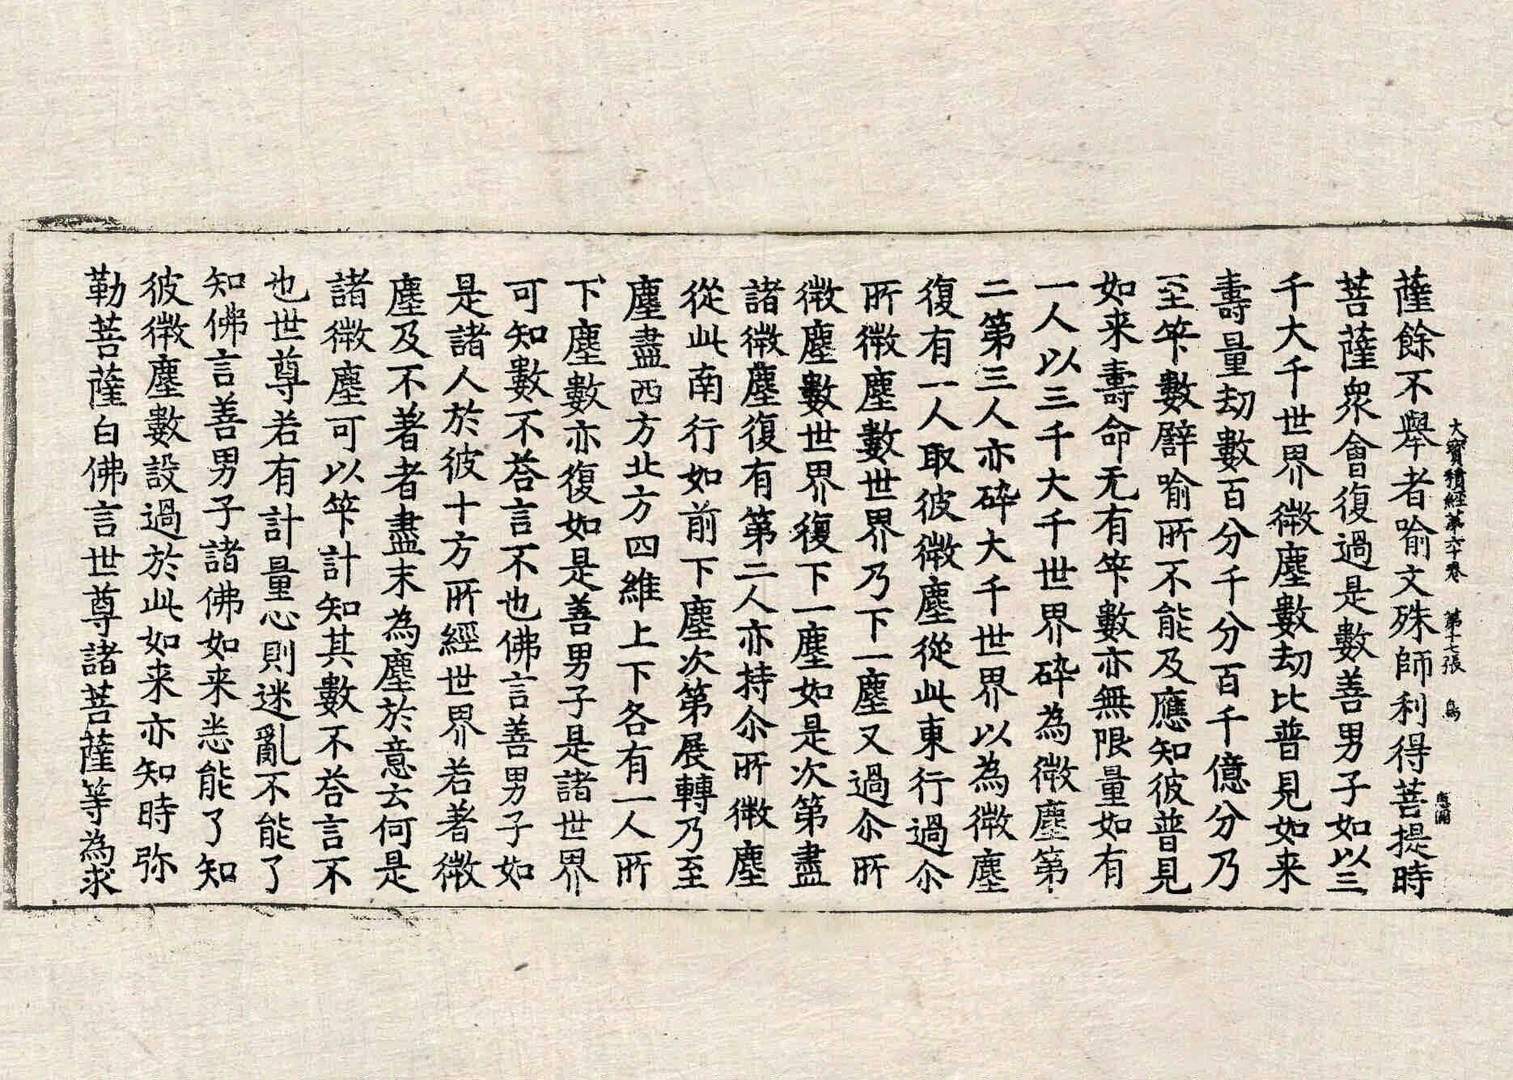 大寳積經第六十卷　第十七張　鳥
薩餘不舉者喻文殊師利得菩提時
菩薩衆會復過是數善男子如以三
千大千世界微塵數劫比普見如来
壽量劫數百分千分百千億分乃
至筭數譬喻所不能及應知彼普見
如来壽命无有筭數亦無限量如有
一人以三千大千世界碎為微塵第
二第三人亦碎大千世界以為微塵
復有一人取彼微塵從此東行過尒
所微塵數世界乃下一塵又過尒所
微塵數世界復下一塵如是次第盡
諸微塵復有第二人亦持尒所微塵
從此南行如前下塵次第展轉乃至
塵盡西方北方四維上下各有一人所
下塵數亦復如是善男子是諸世界
可知數不荅言不也佛言善男子如
是諸人於彼十方所經世界若著微
塵及不著者盡末為塵於意云何是
諸微塵可以筭計知其數不荅言不
也世尊若有計量心則迷亂不能了
知佛言善男子諸佛如来悉能了知
彼微塵數設過於此如来亦知時弥
勒菩薩白佛言世尊諸菩薩等為求